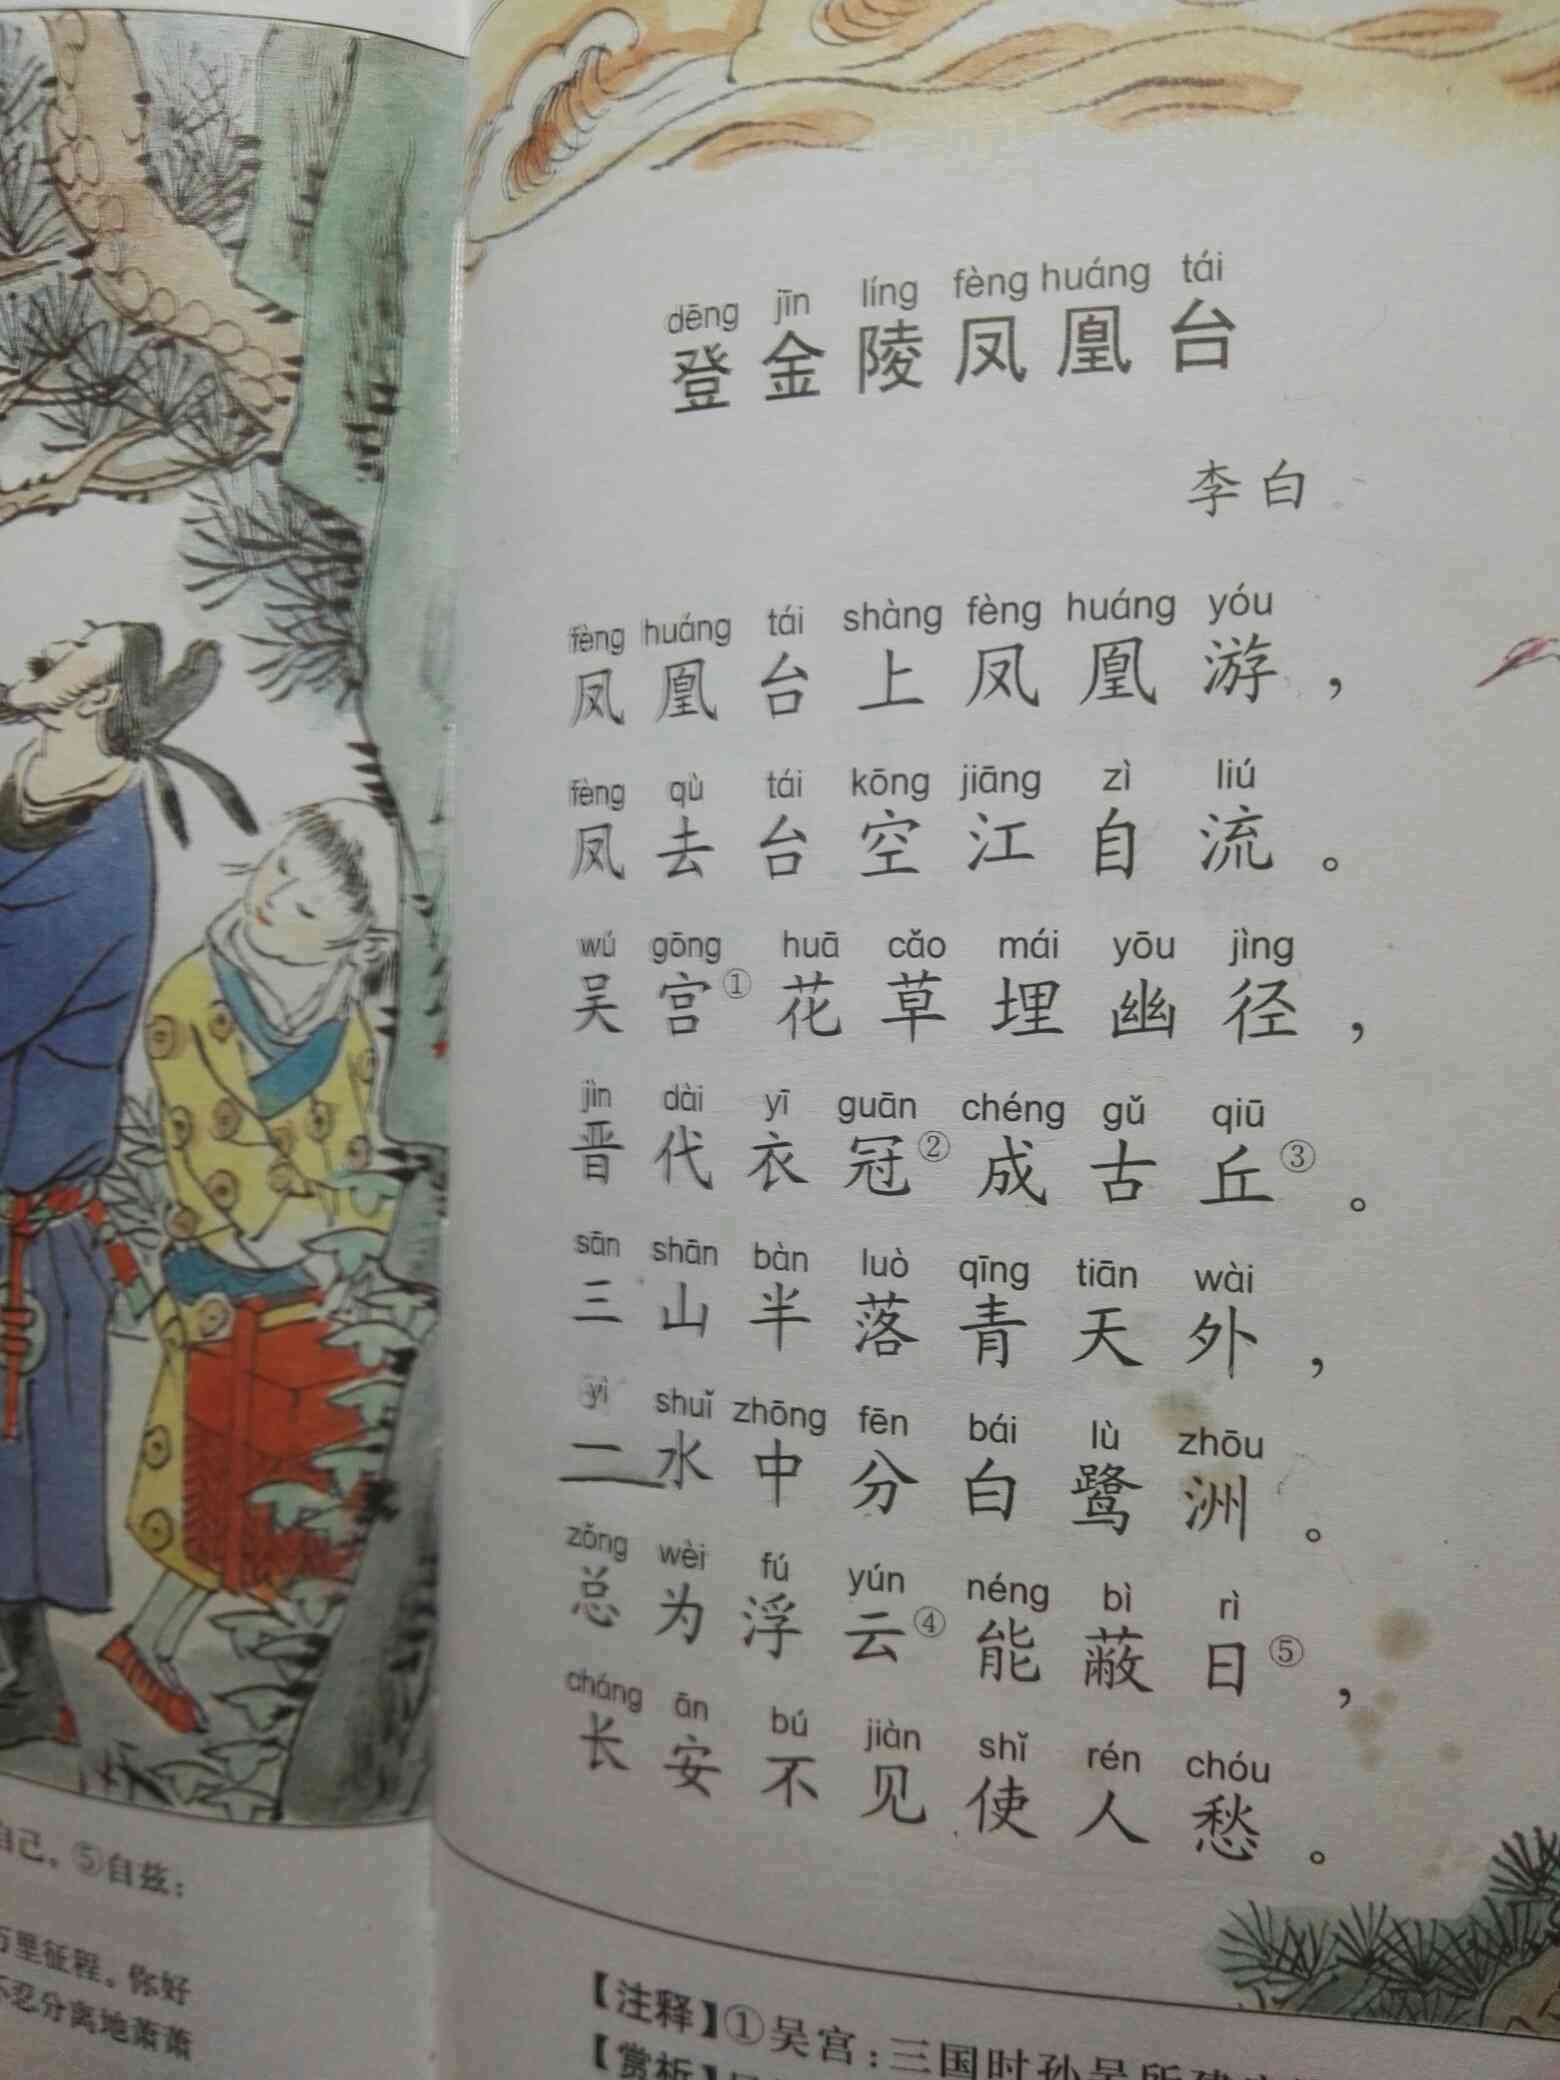 dēng jīn líng fèng huáng tái
登金陵凤凰台
李白
fèng huáng tái shàng fèng huáng yóu
凤凰台上凤凰游，
fèng qù tái kōng jiāng zì liú
凤去台空江自流。
wú gōng huā cǎo mái yōu jìng
吴宫①花草埋幽径，
jìn dài yī guān chéng gǔ qiū
晋代衣冠②成古丘③。
sān shān bàn luò qīng tiān wài
三山半落青天外，
yì shuǐ zhōng fēn bái lù zhōu
二水中分白鹭洲。
zǒng wèi fú yún néng bì rì
总为浮云④能蔽日⑤，
cháng ān bú jiàn shǐ rén chóu
长安不见使人愁。
【注释】①吴宫：三国时孙吴所建
【赏析】
自己。⑤自兹：
万里征程。你好
不忍分离地萧萧